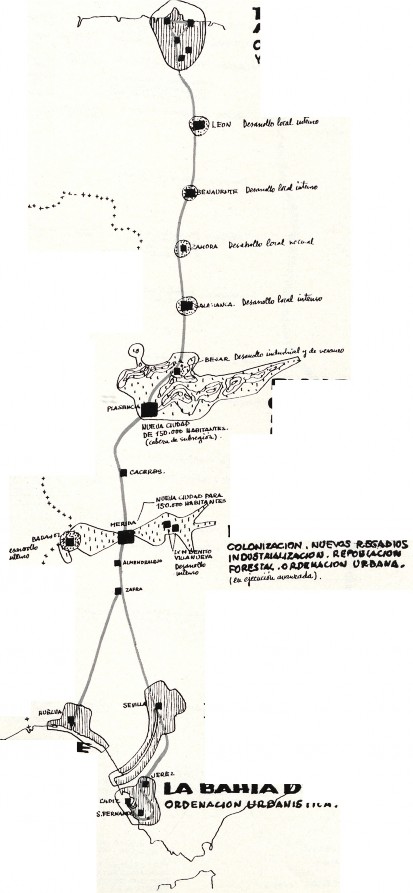 LEON Desarrollo local intenso
BENAVENTE Desarrollo local intenso
ZAMORA Desarrollo local normal
SALAMANCA. Desarrollo local intenso
BEJAR Desarrollo industrial y de veraneo
PLASENCIA
NUEVA CIUDAD
DE 150.000 HABITANTES.
(cabeza de subregión).
CACERES.
NUEVA CIUDAD PARA
150.000 HABITANTES
MERIDA
BADAJOZ
desarrollo
intenso
DON BENITO
VILLANUEVA
Desarrollo
intenso
ALMENDRALEJO
ZAFRA
COLONIZACION. NUEVOS REGADIOS
INDUSTRIALIZACION. REPOBLACION
FORESTAL. ORDENACION URBANA.
(en ejecución avanzada).
HUELVA
SEVILLA
E
JEREZ
LA BAHIA D
CADIZ
ORDENACION URBANISTICA.
S. FERNANDO